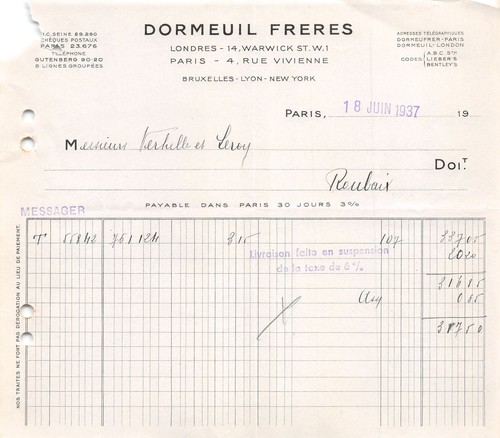 R.C. SEINE 29.290
CHÈQUES POSTAUX
PARIS 23.676
TÉLÉPHONE
GUTENBERG 90-20
6 LIGNES GROUPÉES
DORMEUIL FRERES
LONDRES - 14, WARWICK ST. W.1
PARIS - 4, RUE VIVIENNE
BRUXELLES - LYON - NEW YORK
ADRESSES TÉLÉGRAPHIQUES
DORMEUFRER-PARIS
DORMEUIL-LONDON
CODES A.B.C. 5TH
LIEBER'S
BENTLEY'S
PARIS, 18 JUIN 1937 19
Messieurs et Leroy
DOIT
Roubaix
PAYABLE DANS PARIS 30 JOURS 3%
MESSAGER
NOS TRAITES NE FONT PAS DÉROGATION AU LIEU DE PAIEMENT.
T 55842 761124 315 107 33705
Livraison faite en suspension
de la taxe de 6%
2020